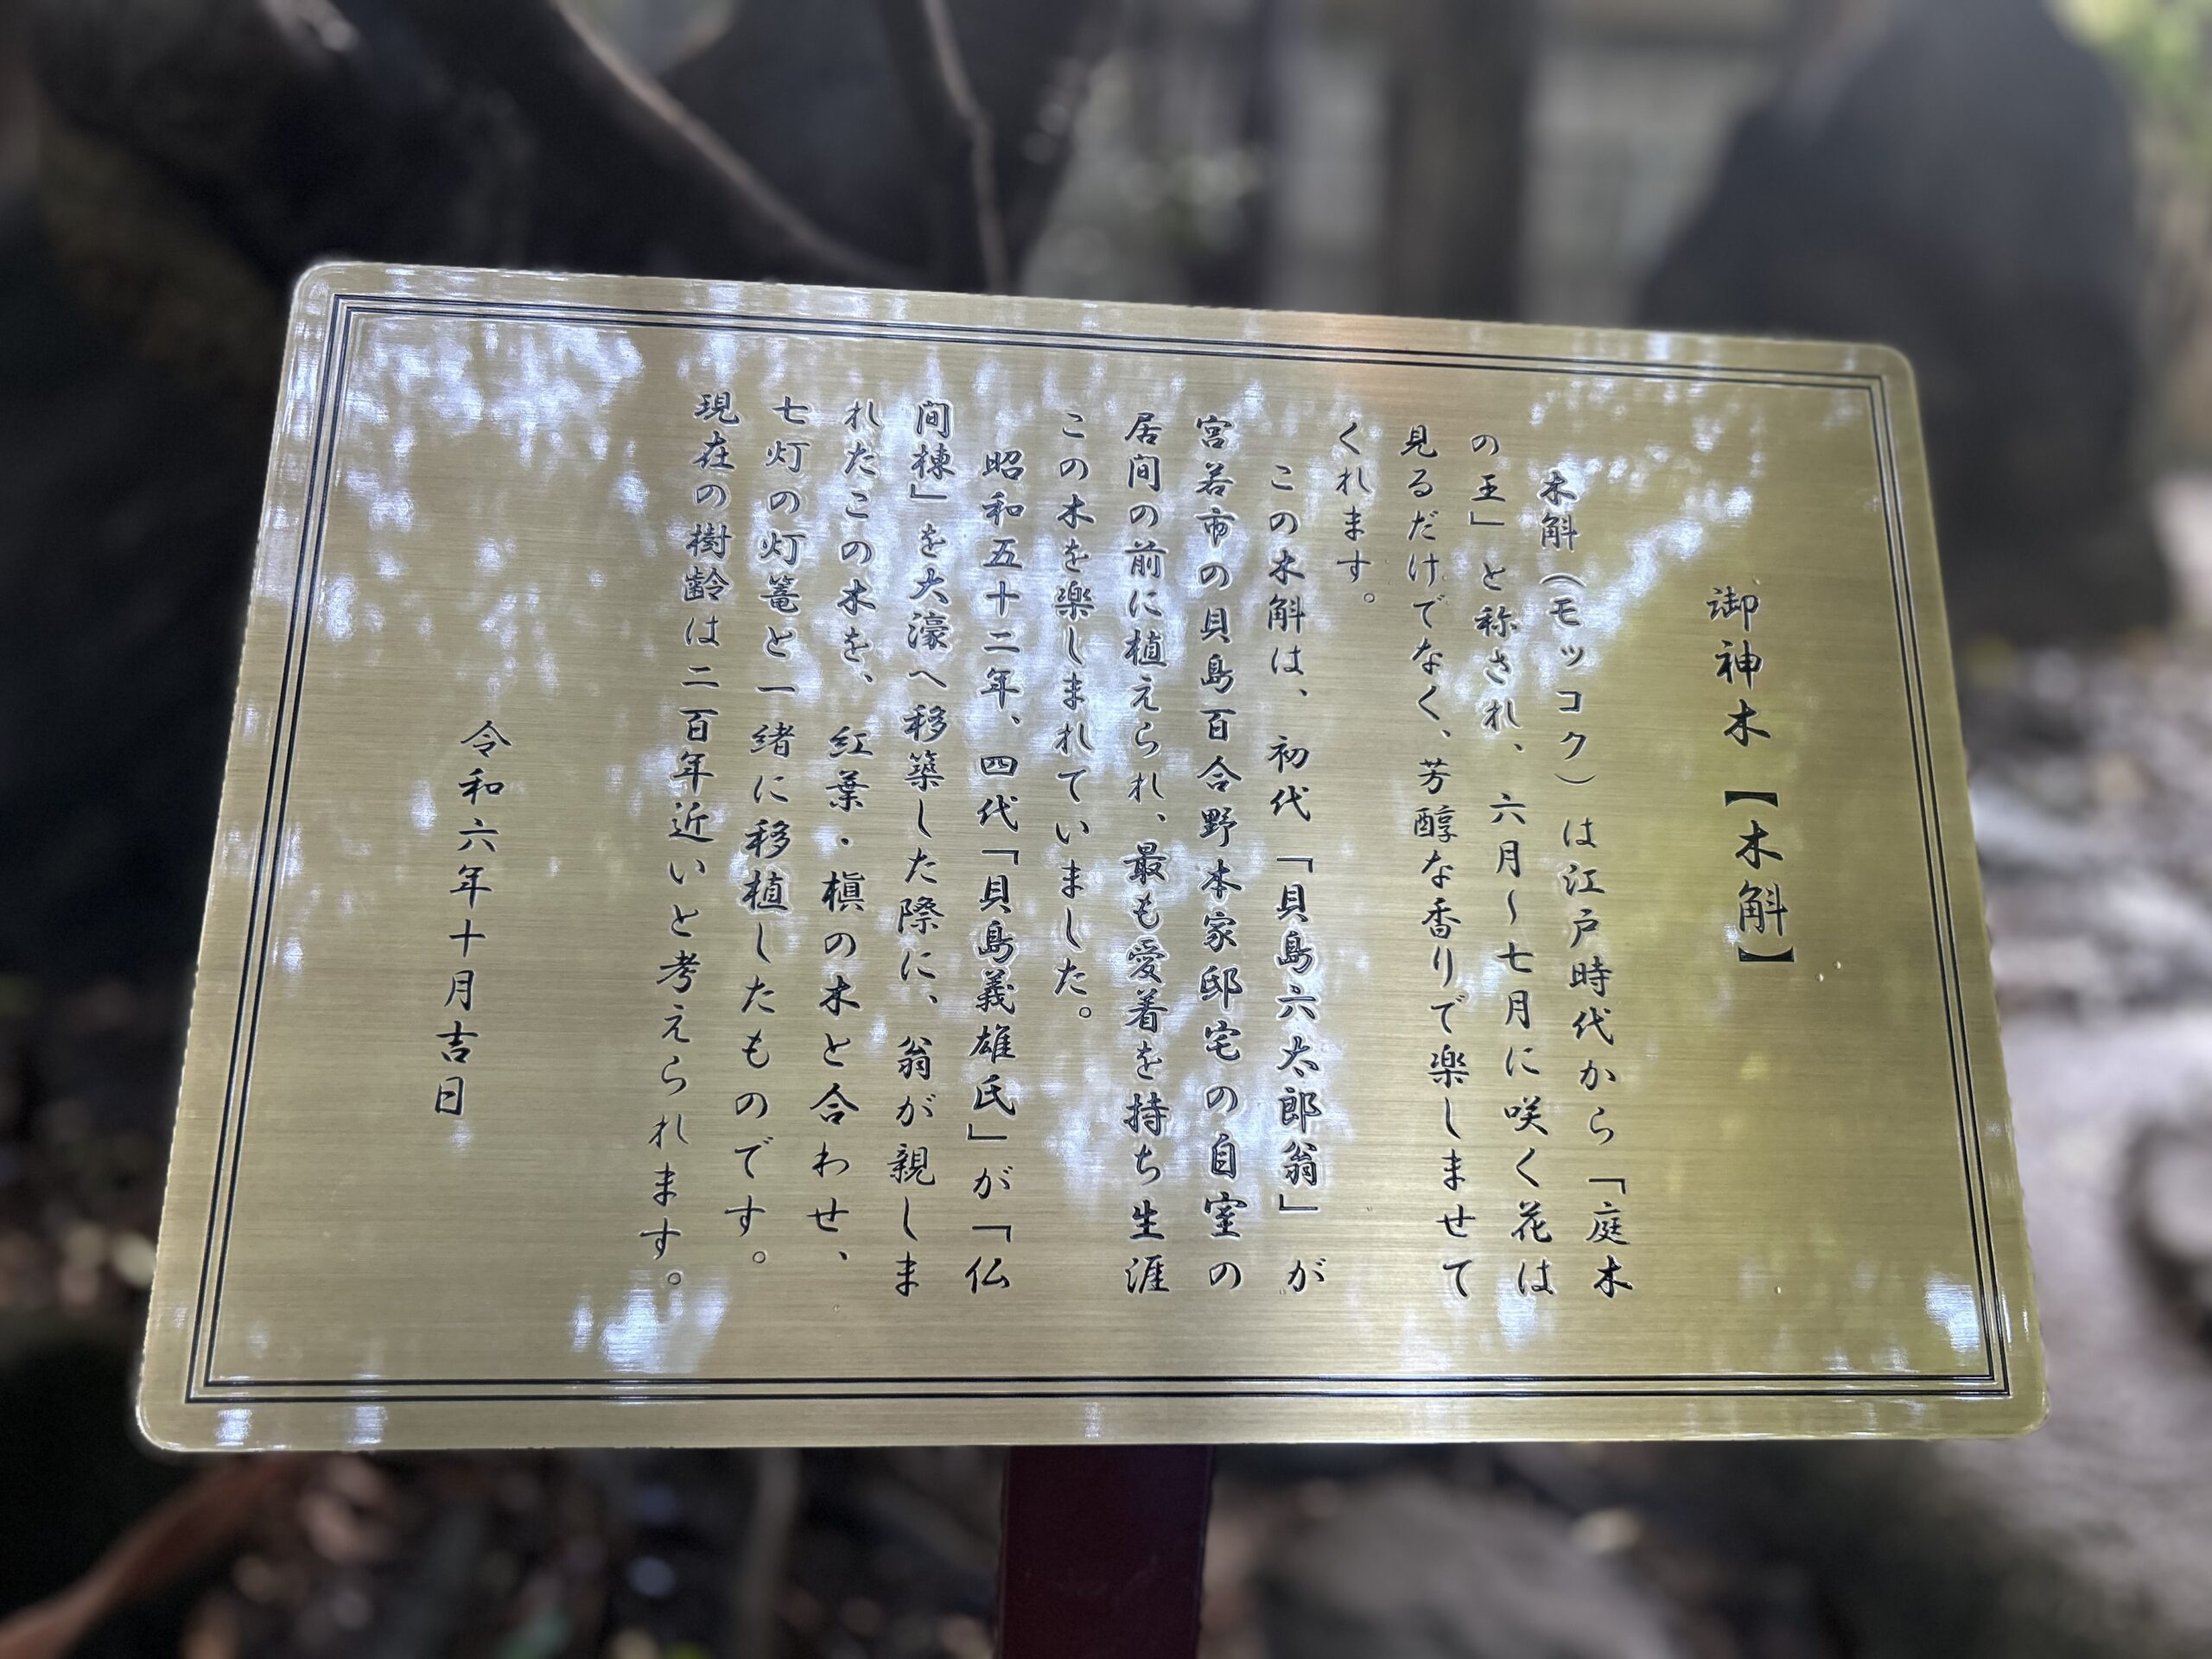 御神木【木斛】
木斛（モッコク）は江戸時代から「庭木
の王」と称され、六月〜七月に咲く花は
見るだけでなく、芳醇な香りで楽しませて
くれます。
この木斛は、初代「貝島六太郎翁」が
宮若市の貝島百合野本家邸宅の自室の
居間の前に植えられ、最も愛着を持ち生涯
この木を楽しまれていました。
昭和五十二年、四代「貝島義雄氏」が「仏
間棟」を大濠へ移築した際に、翁が親しま
れたこの木を、紅葉・槇の木と合わせ、
七灯の灯篭と一緒に移植したものです。
現在の樹齢は二百年近いと考えられます。
令和六年十月吉日